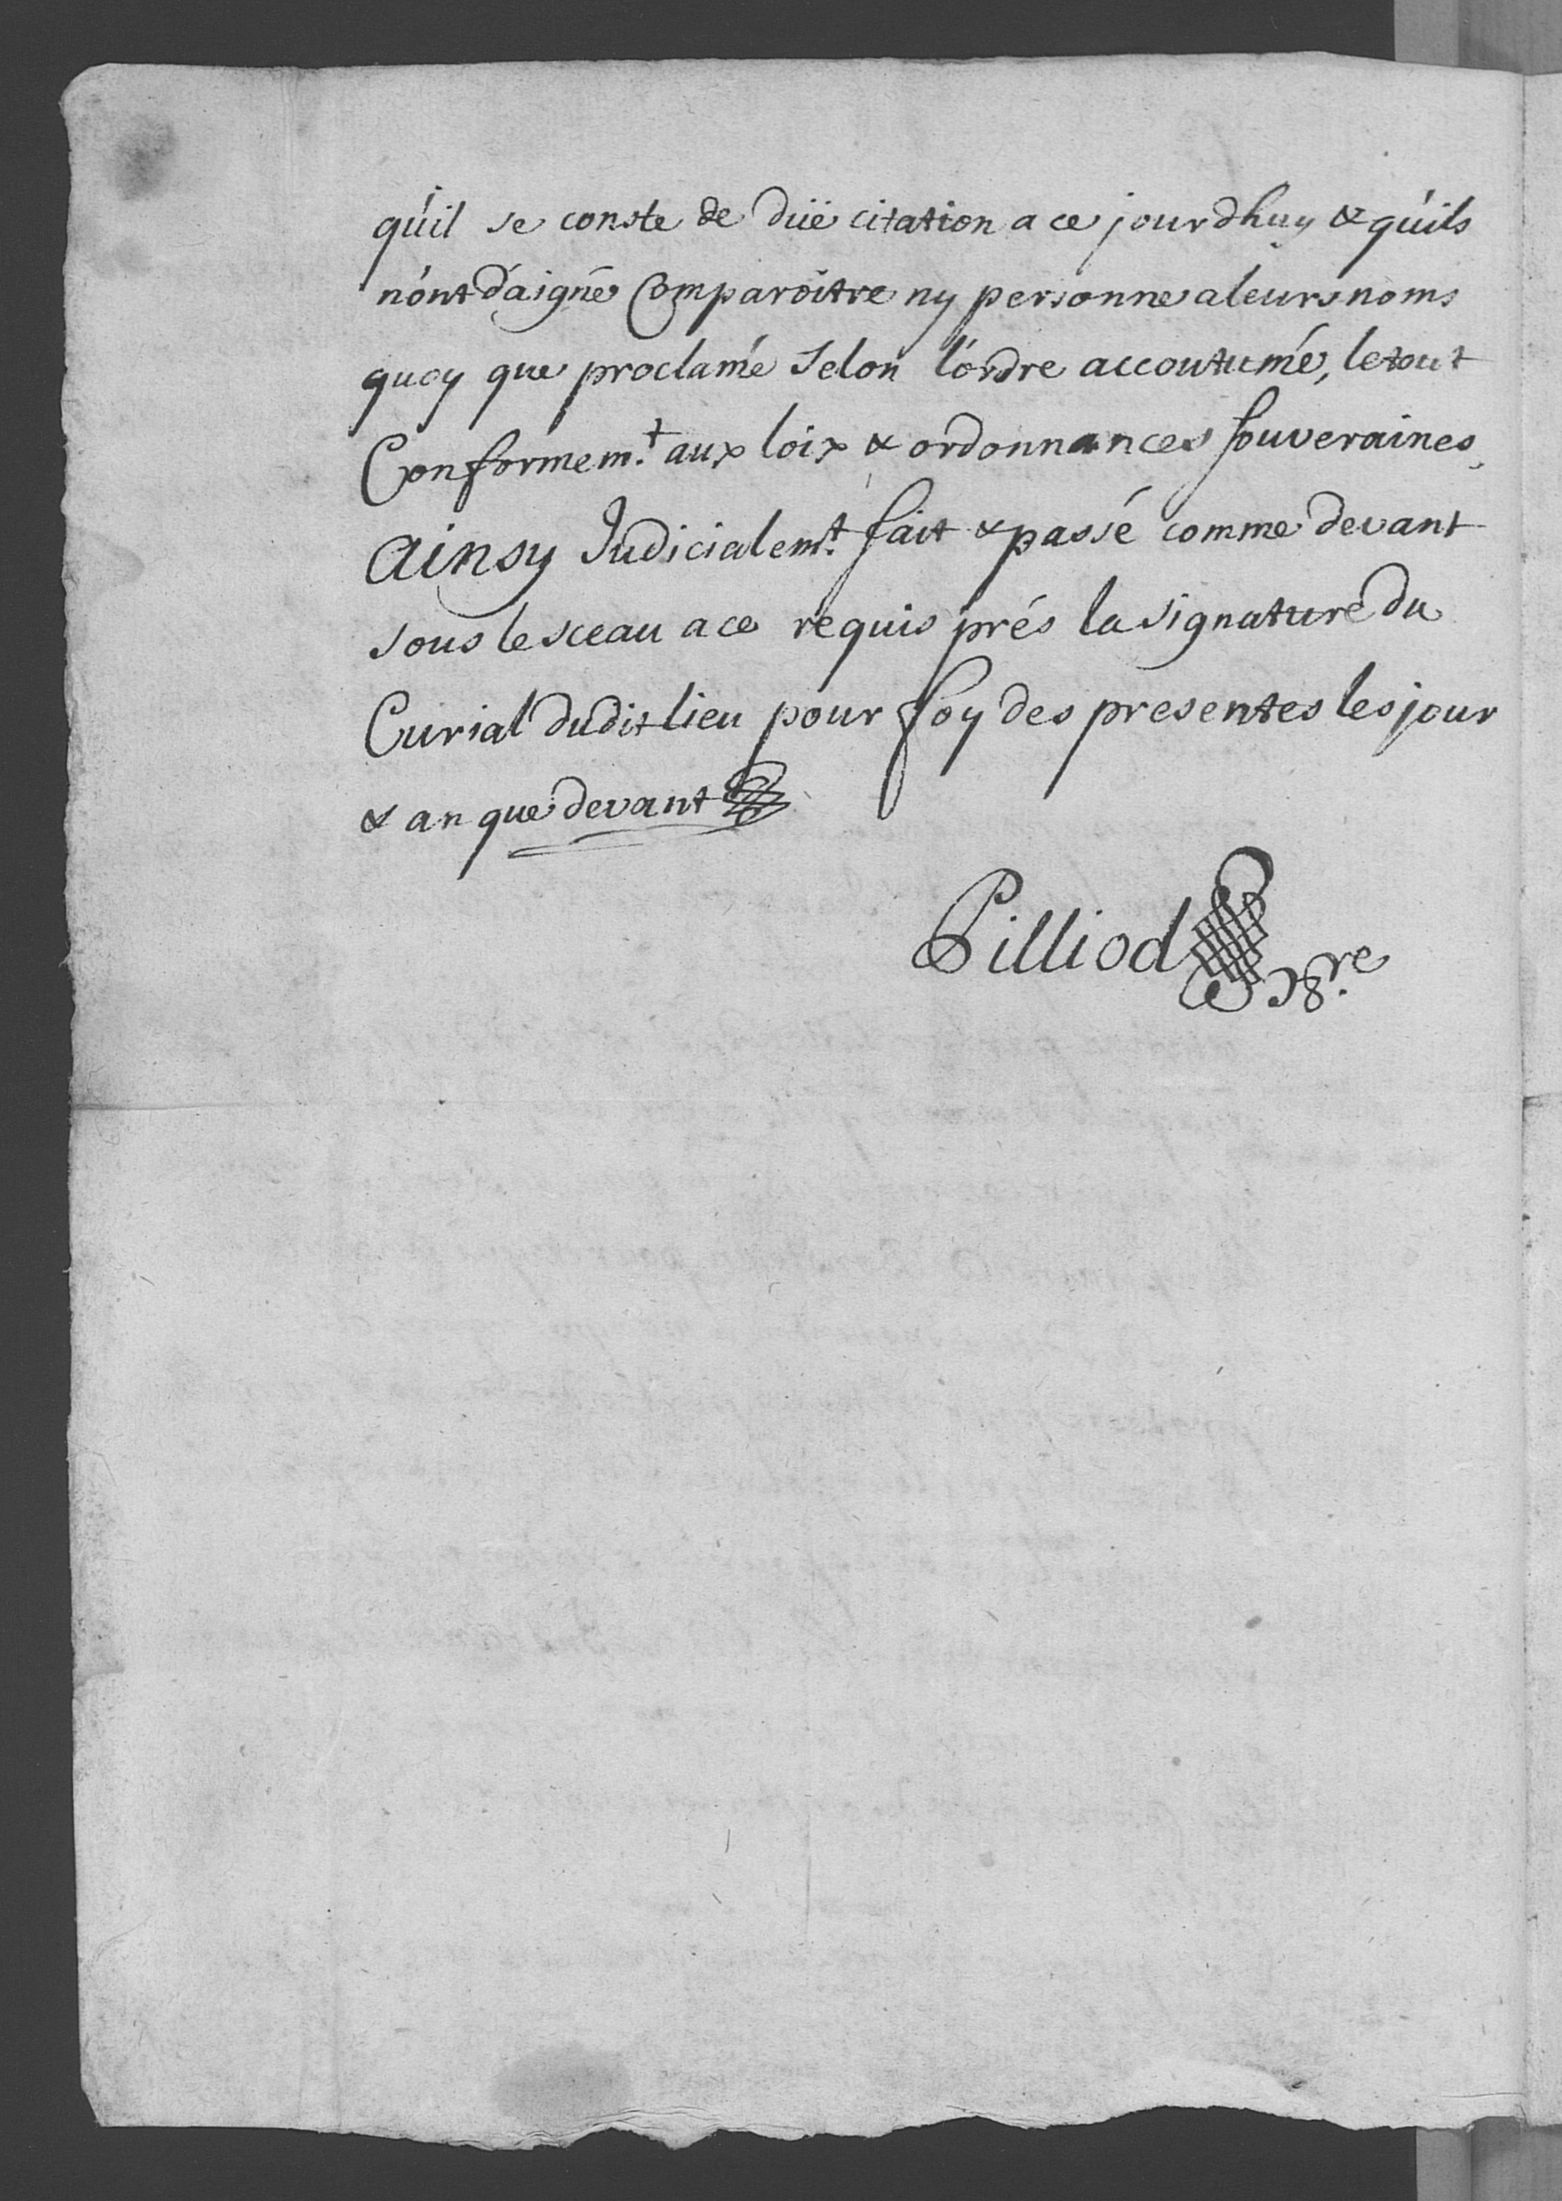 qu'il se conste de düe citation a ce jourdhuy & qu'ils
n'ont d'aigné Comparoitre ny personne a leurs noms
quoy que proclamé Selon l'ordre accoutumé, le tout
Conformem.t aux loix & ordonnances souveraines.
Ainsy Judicialem.t fait & passé comme devant
sous le sceau a ce requis prés la signature du
Curial dudit lieu pour foy des presentes les jour
& an que devant
Pilliod